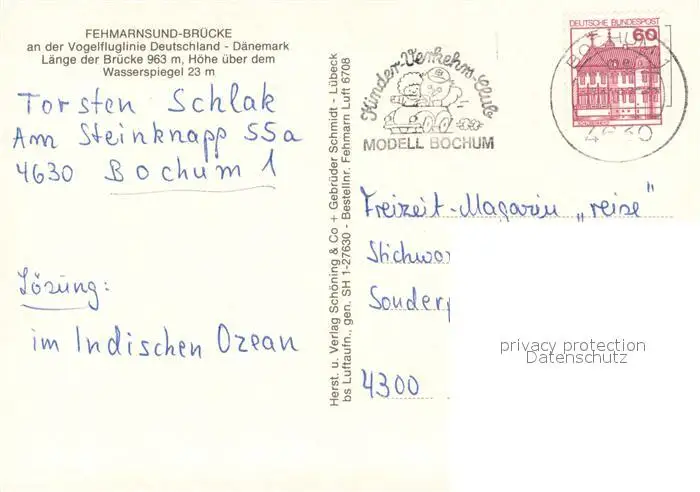 FEHMARNSUND-BRÜCKE
an der Vogelfluglinie Deutschland - Dänemark
Länge der Brücke 963 m, Höhe über dem
Wasserspiegel 23 m
Torsten Schlak
Am Steinknapp 55a
4630 Bochum 1
Lösung:
im Indischen Ozean
Herst. u. Verlag Schöning & Co + Gebrüder Schmidt - Lübeck
bs Luftaufn., gen. SH 1-27630 - Bestellnr. Fehmarn Luft 6708
Kinder-Verkehrs-Club
MODELL BOCHUM
DEUTSCHE BUNDESPOST
60
BOCHUM 1
me
4630
Freizeit-Magazin „reise"
Stichwor
Sonderp
4300
privacy protection
Datenschutz